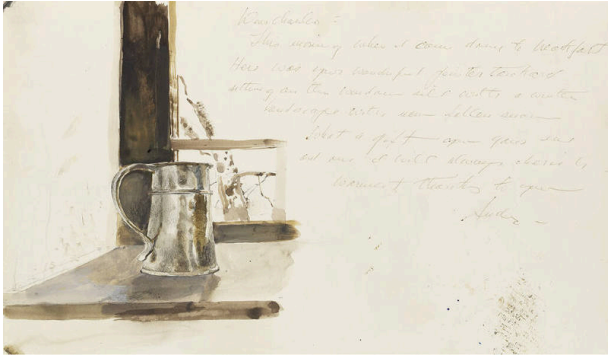 Dear Charles –
This morning when I came down to breakfast
Here was your wonderful pewter tankard
sitting on the window sill with a winter
landscape with new fallen snow
What a gift you gave me
and one I will always cherish
warmest thanks to you
Andy –